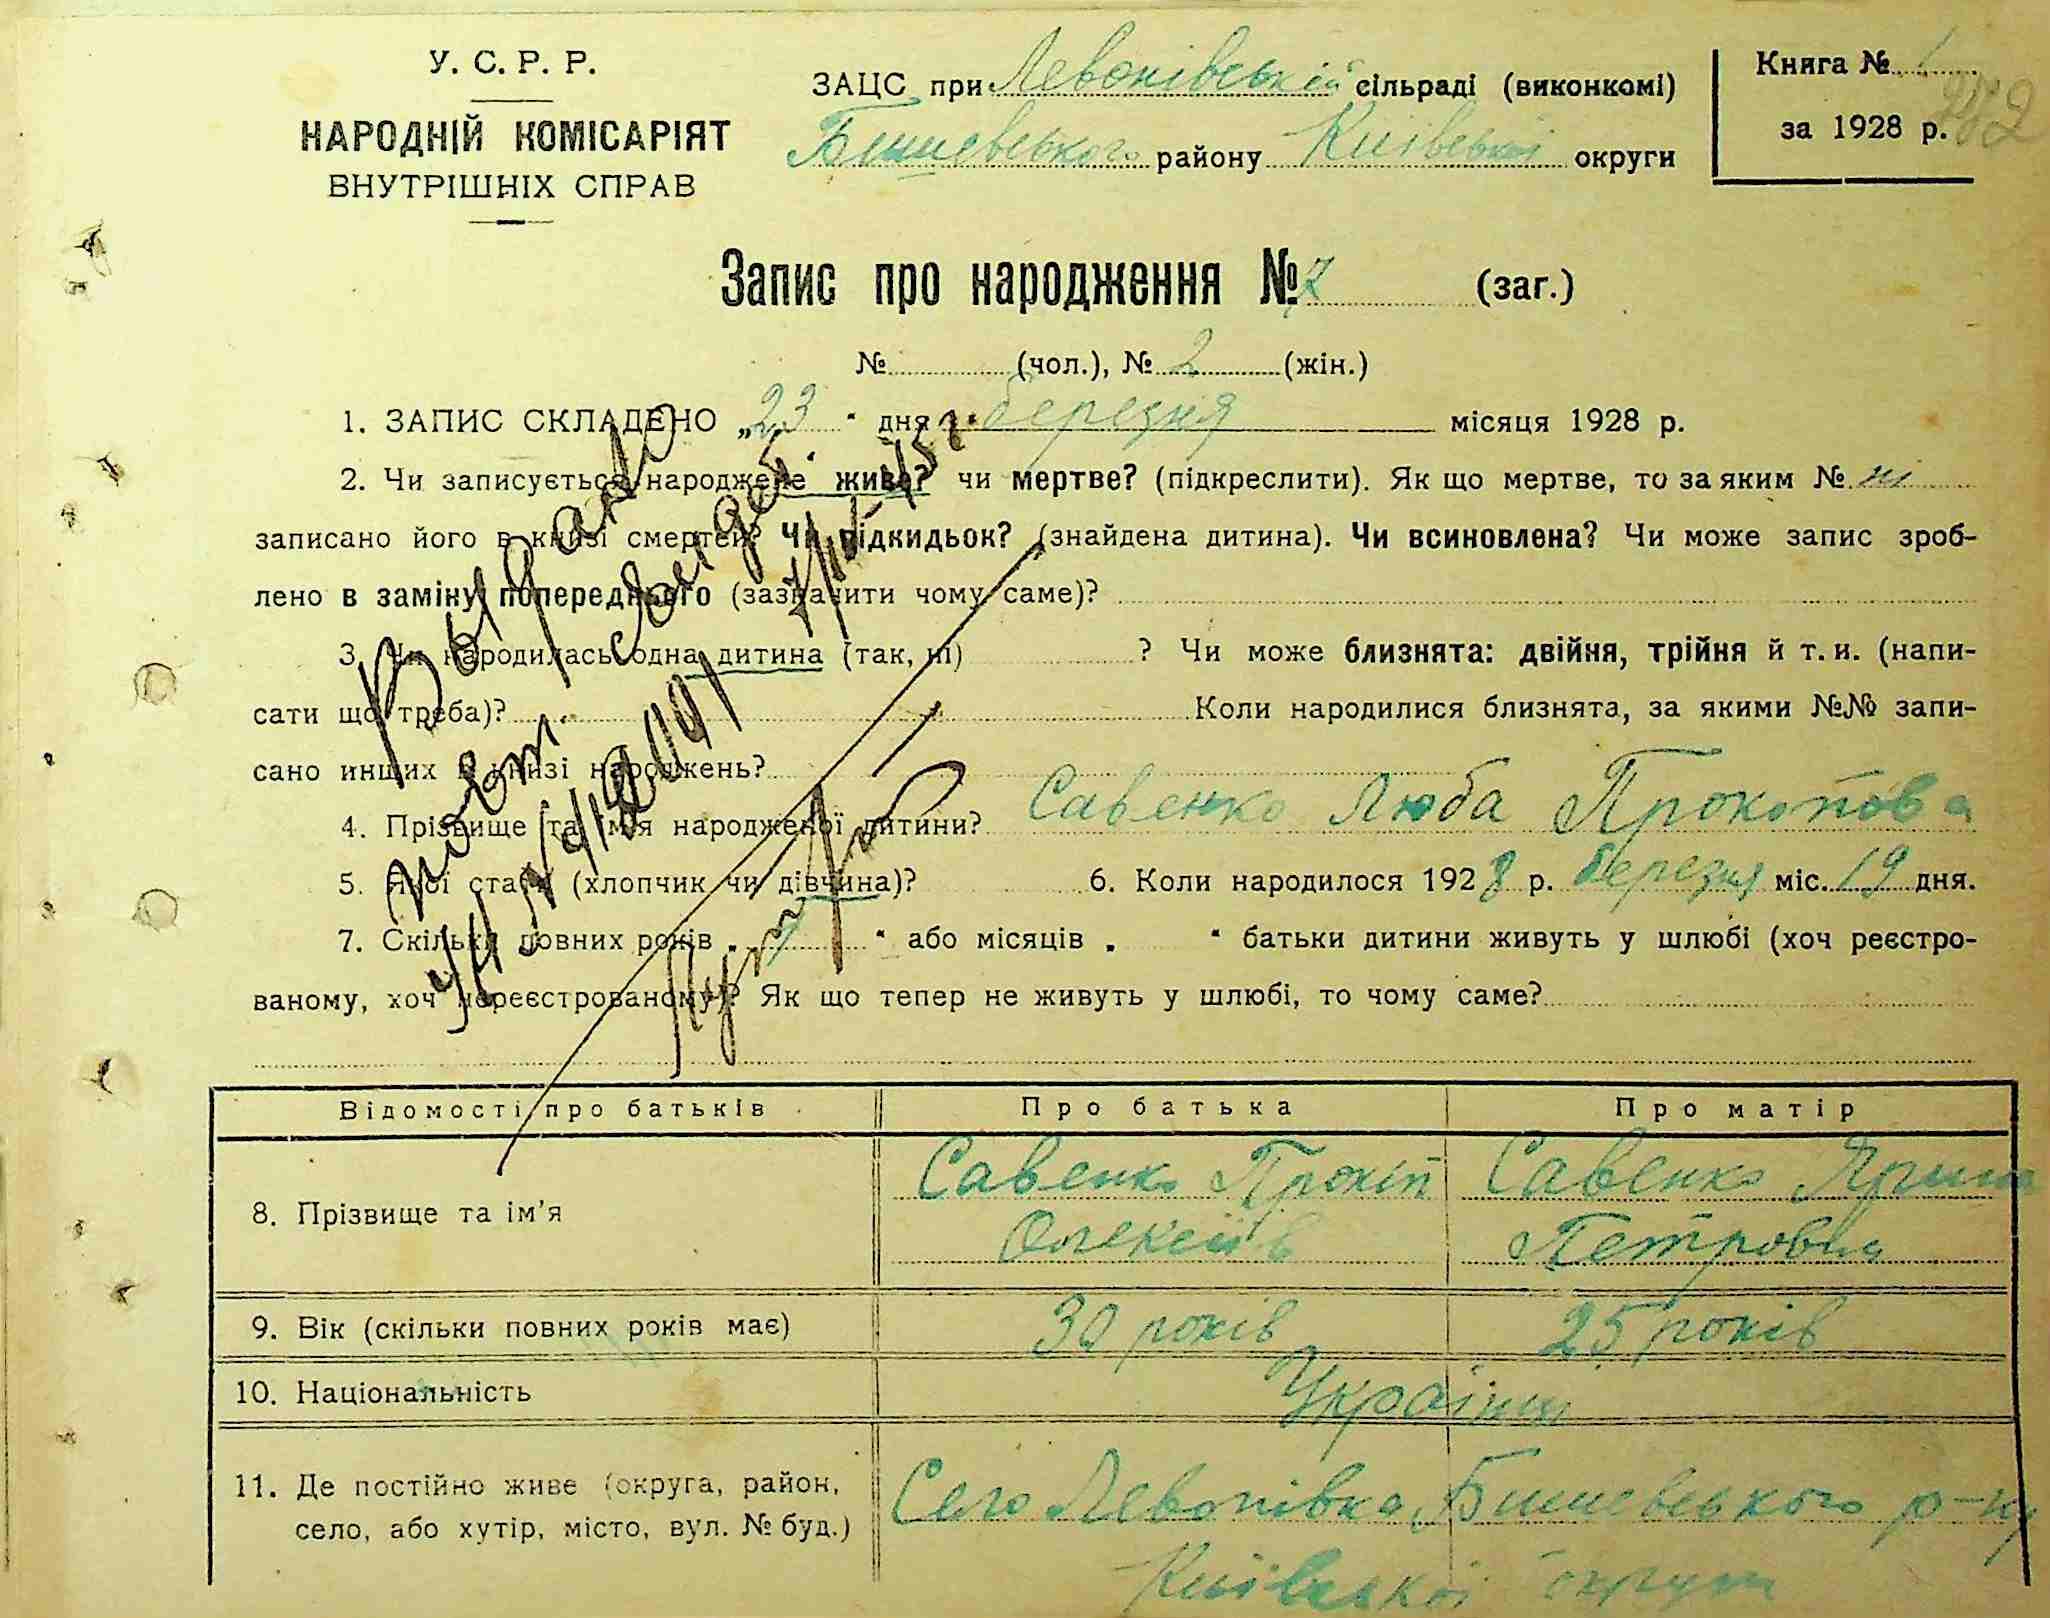 У. С. Р. Р.
НАРОДНІЙ КОМІСАРІЯТ
ВНУТРІШНІХ СПРАВ
ЗАЦС при Левонівській сільраді (виконкомі)
Бишевського району Київської округи
Книга № 1
за 1928 р.
Запис про народження № 7 (заг.)
№ (чол.), № 2 (жін.)
1. ЗАПИС СКЛАДЕНО „23“ дня березня місяця 1928 р.
2. Чи записується народжене живе? чи мертве? (підкреслити). Як що мертве, то за яким № ні
записано його в книзі смертей? Чи підкидьок? (знайдена дитина). Чи всиновлена? Чи може запис зроб-
лено в заміну попереднього (зазначити чому саме)?
3. Чи народилась одна дитина (так, ні) ? Чи може близнята: двійня, трійня й т. и. (напи-
сати що треба)? Коли народилися близнята, за якими №№ запи-
сано инших в книзі народжень?
4. Прізвище та ім'я народженої дитини? Савенко Люба Прокопова
5. Якої статі (хлопчик чи дівчина)? 6. Коли народилося 1928 р. березня міс. 19 дня.
7. Скільки повних років „7“ або місяців „ “ батьки дитини живуть у шлюбі (хоч реєстро-
ваному, хоч нереєстрованому)? Як що тепер не живуть у шлюбі, то чому саме?
Выдано
повт. свидет.
Відомості про батьків Про батька Про матір
8. Прізвище та ім'я Савенко Прокіп Савенко Ярина
Олексіїв Петровна
9. Вік (скільки повних років має) 30 років 25 років
10. Національність Українці
11. Де постійно живе (округа, район,
село, або хутір, місто, вул. № буд.)
Село Левонівка, Бишевського р-ну
Київської округи